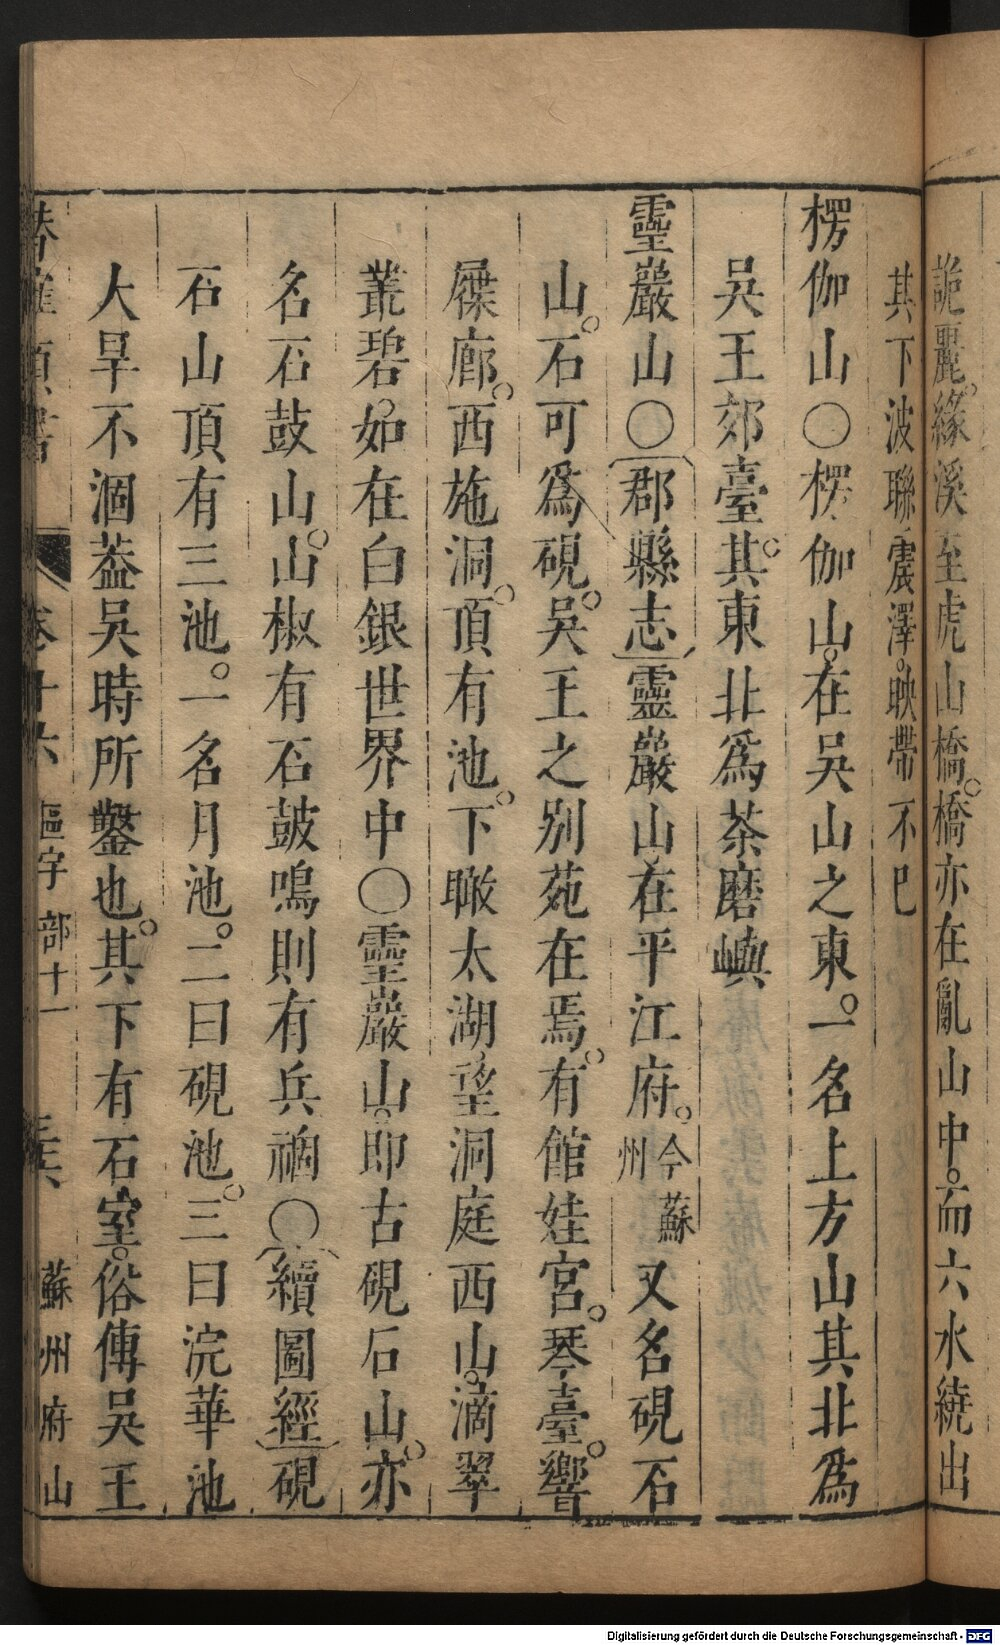 詭麗。緣溪至虎山橋。橋亦在亂山中。而六水繞出
其下波聯震澤。映帶不巳
楞伽山○楞伽山。在吳山之東。一名上方山其北爲
吳王郊臺。其東北爲茶磨嶼
靈巖山○郡縣志靈巖山在平江府。今蘇州又名硯石
山。石可爲硯。吳王之別苑在焉。有館娃宮。琴臺。響
屧廊。西施洞。頂有池。下瞰太湖。望洞庭西山。滴翠
叢碧。如在白銀世界中○靈巖山。即古硯石山。亦
名石鼓山。山椒有石鼓鳴則有兵禍○續圖經硯
石山頂有三池。一名月池。二曰硯池。三曰浣華池
大旱不涸葢吳時所鑿也。其下有石室。俗傳吳王
卷十六 區字部十一 蘇州府山
Digitalisierung gefördert durch die Deutsche Forschungsgemeinschaft - DFG